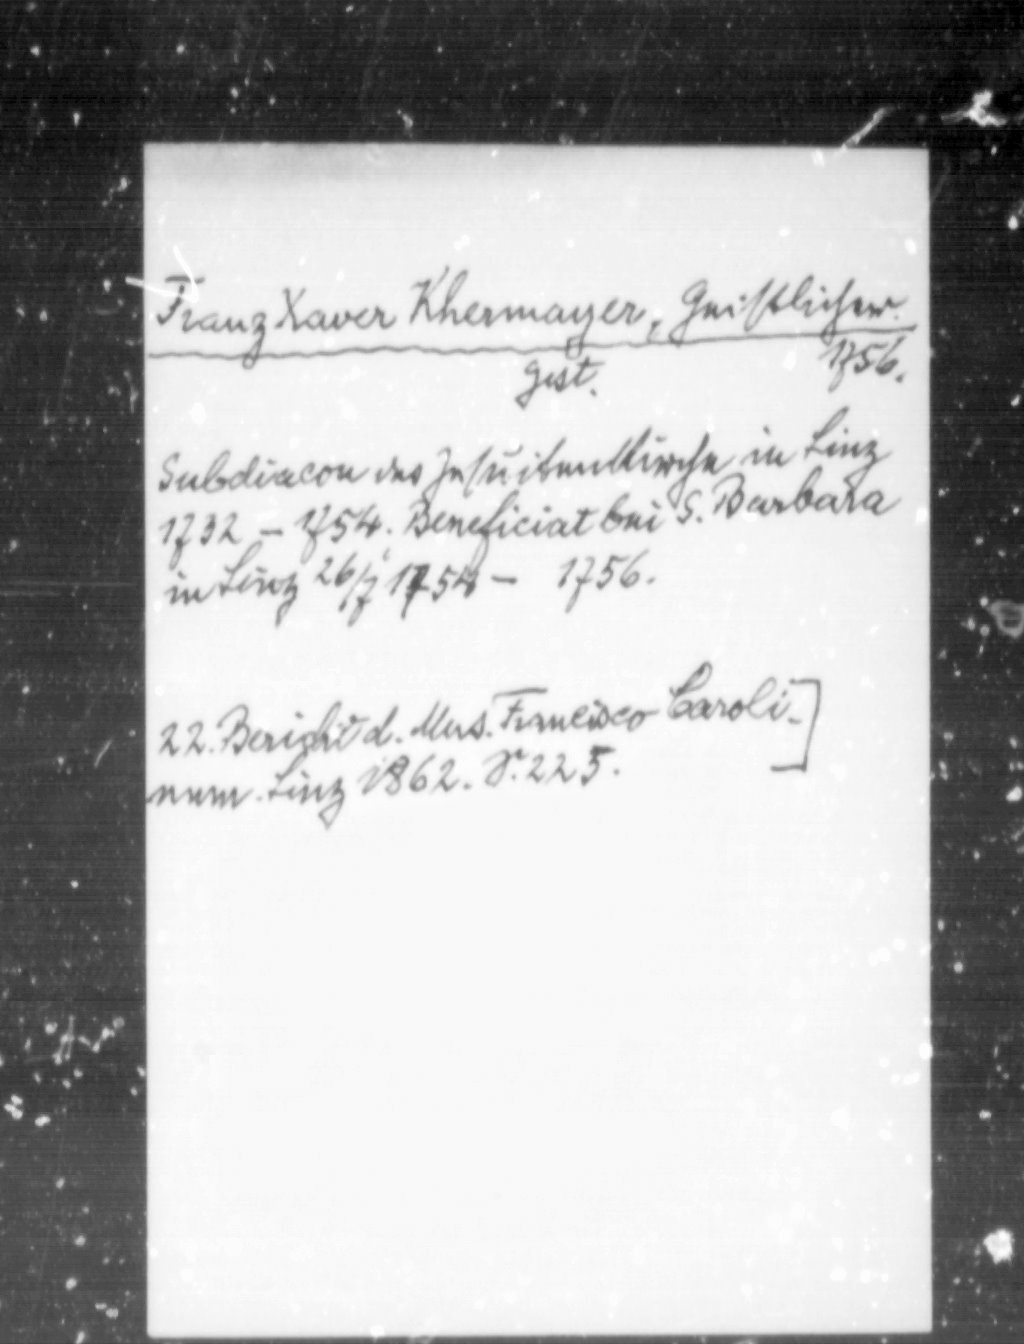 Franz Xaver Khermayer, Geistlicher.
gest. 1756.
Subdiacon der Jesuitenkirche in Linz
1732 – 1754. Beneficiat bei S. Barbara
in Linz 26/7 1754 – 1756.
22. Bericht d. Mus. Francisco Caroli-
num. Linz 1862. S. 225. ]